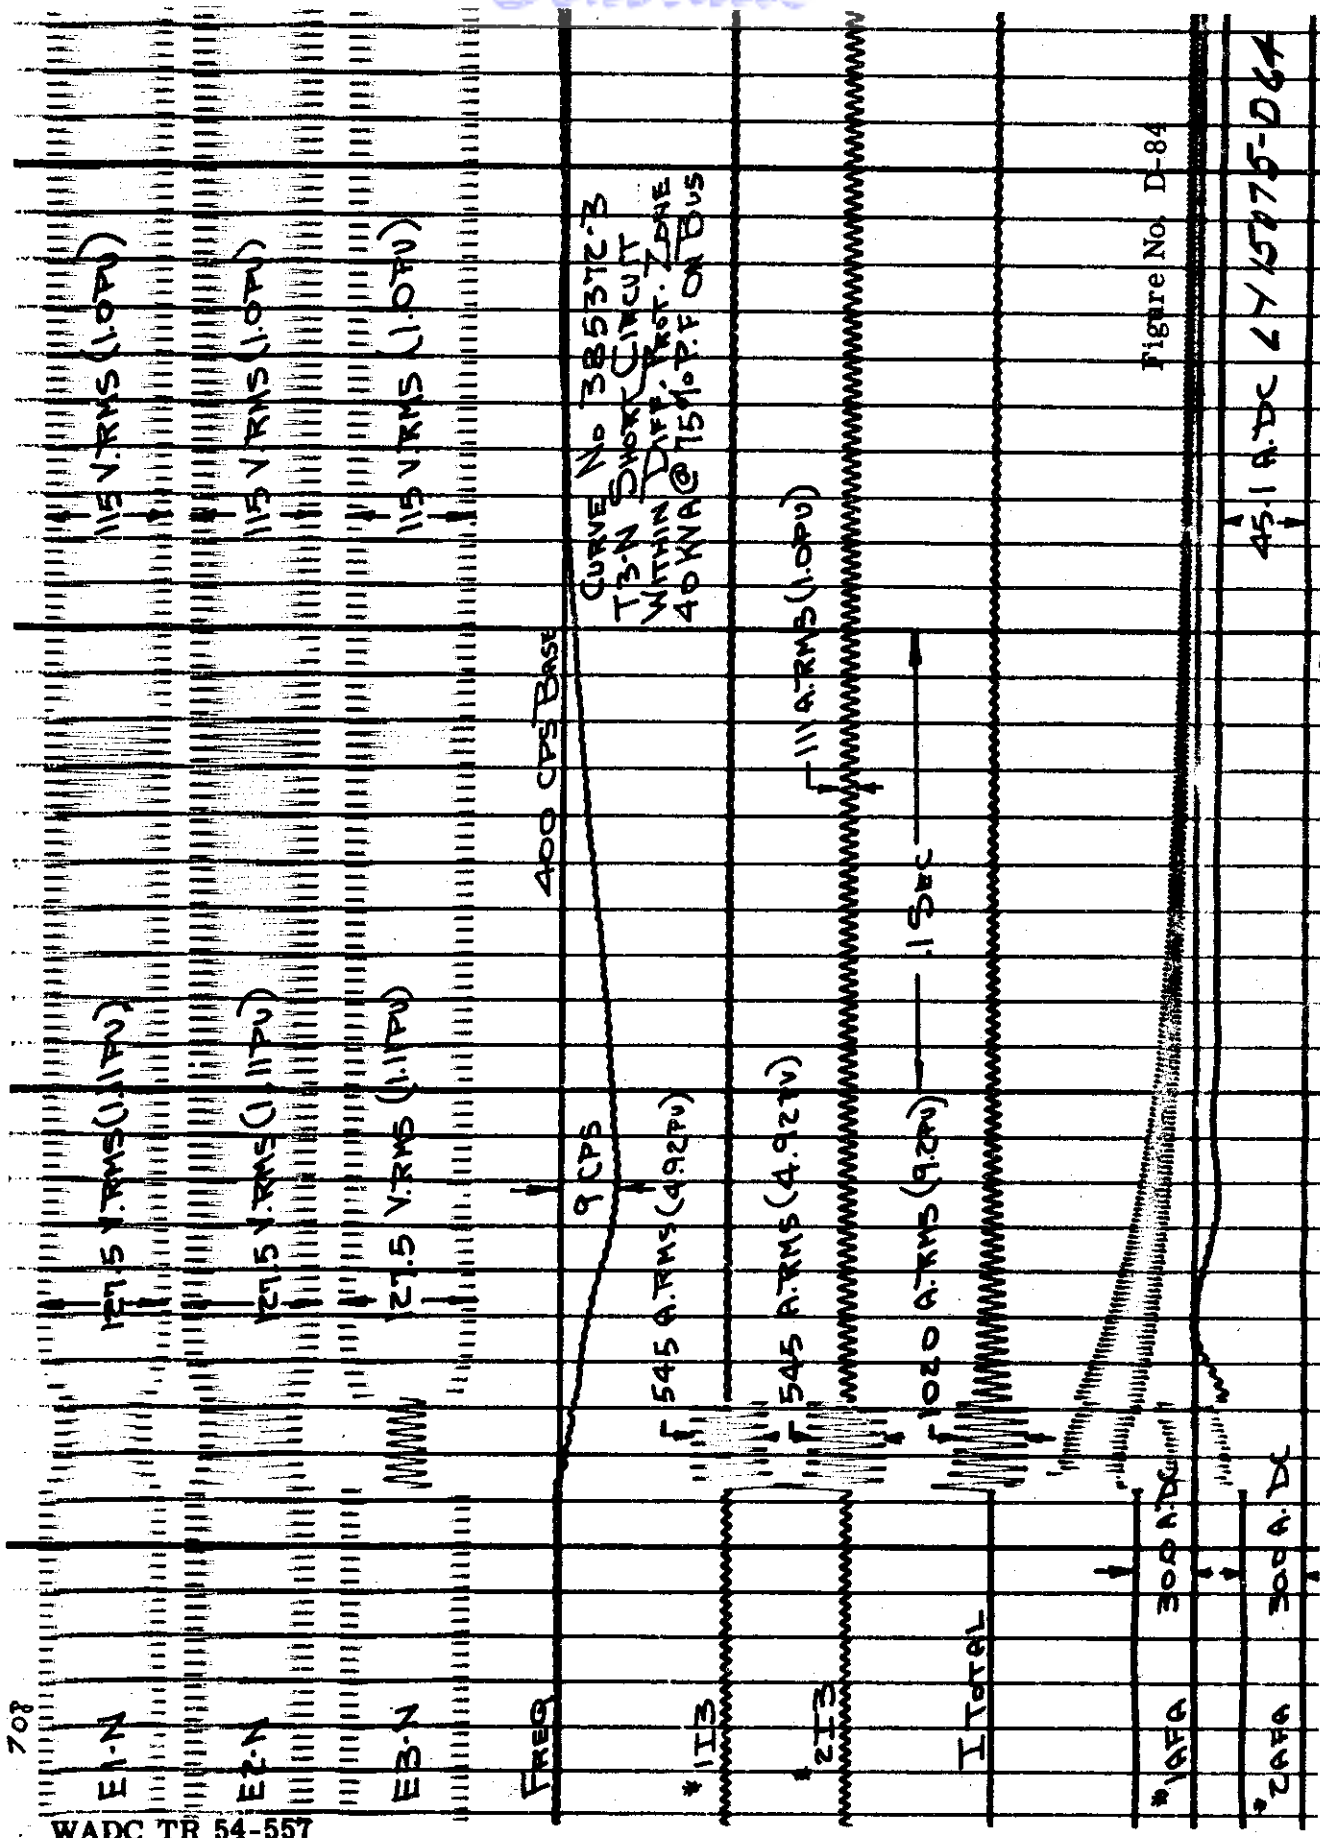 708
WADC TR 54-557
E1-N
127.5 V.RMS (1.11PU)
115 V.RMS (1.0PU)
E2-N
127.5 V.RMS (1.11PU)
115 V.RMS (1.0PU)
E3-N
127.5 V.RMS (1.11PU)
115 V.RMS (1.0PU)
FREQ
9 CPS
400 CPS BASE
CURVE No 385372-3
T3-N SHORT CIRCUIT
WITHIN DIFF. PROT. ZONE
40 KVA @ 75% P.F ON BUS
* 1I3
545 A.RMS (4.92PU)
* 2I3
545 A.RMS (4.92PU)
111 A.RMS (1.0PU)
I TOTAL
1020 A.RMS (9.2PU)
.1 SEC
* 1AFA
30.0 A.DC
Figure No. D-84
* 2AFA
30.0 A.DC
45.1 A.DC
LY 15075-D64